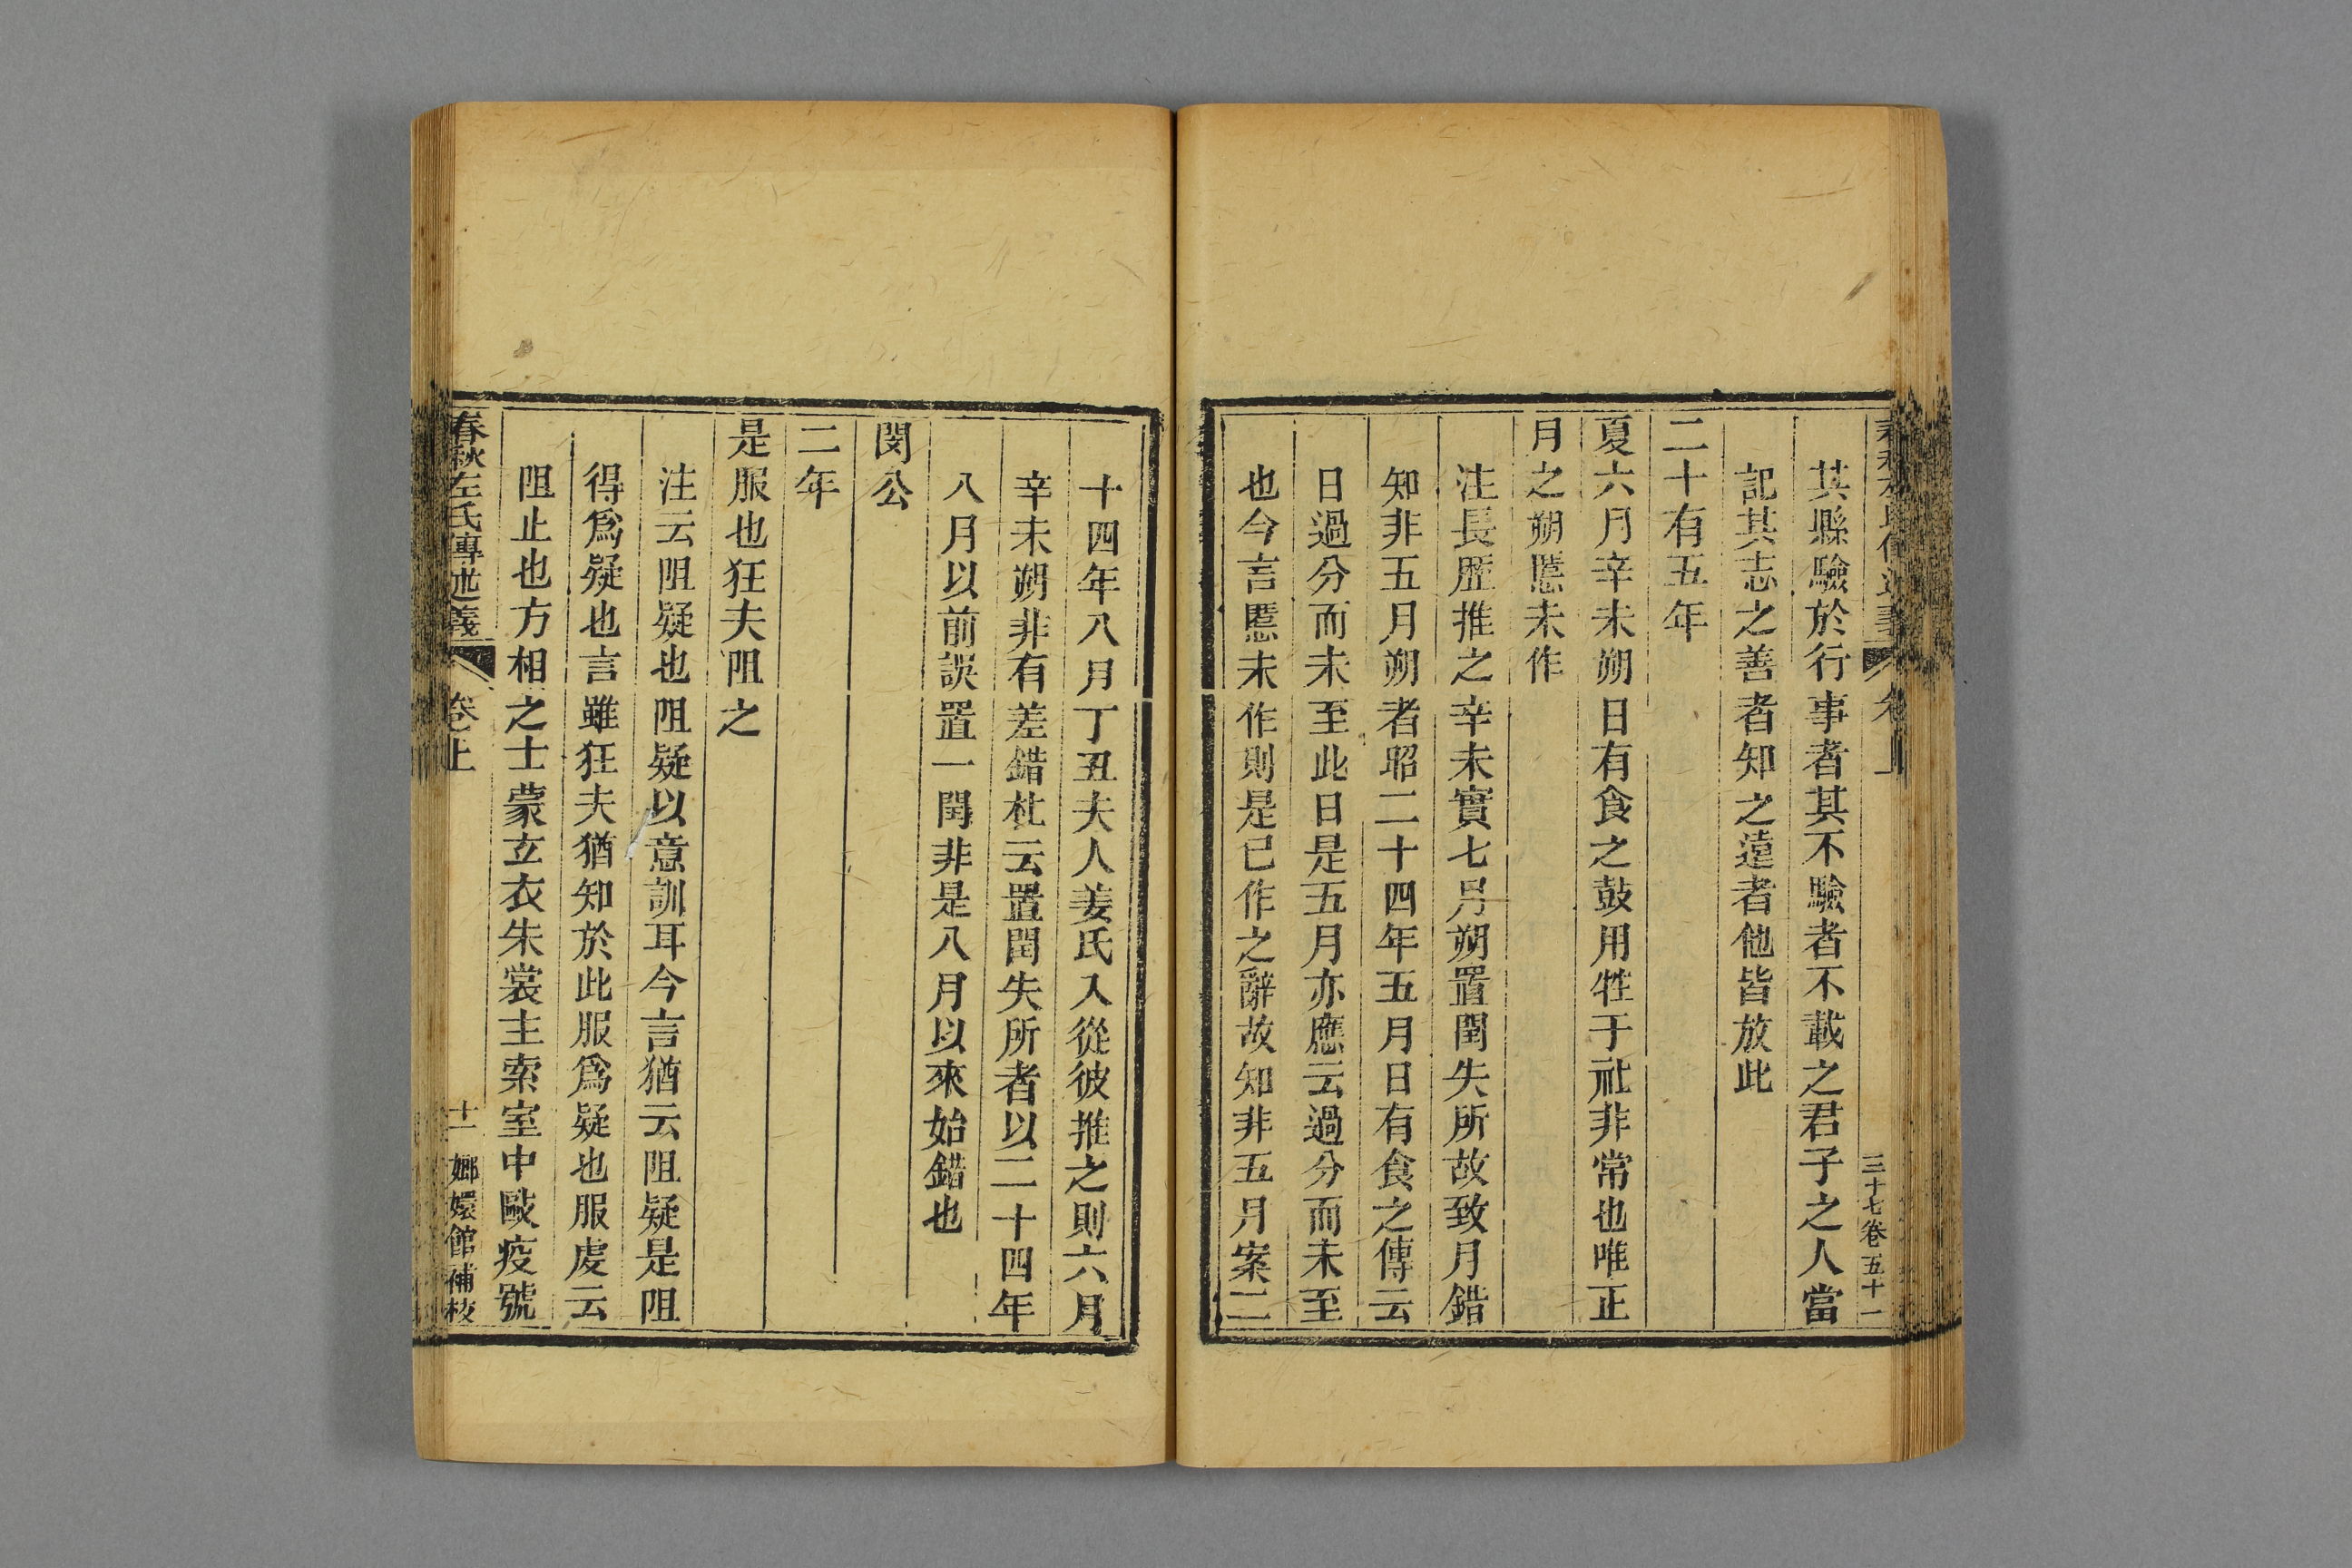 三十七卷五十一
其縣驗於行事者其不驗者不載之君子之人當
記其志之善者知之遠者他皆放此
二十有五年
夏六月辛未朔日有食之鼓用牲于社非常也唯正
月之朔慝未作
注長歷推之辛未實七月朔置閏失所故致月錯
知非五月朔者昭二十四年五月日有食之傳云
日過分而未至此日是五月亦應云過分而未至
也今言慝未作則是已作之辭故知非五月案二
十四年八月丁丑夫人姜氏入從彼推之則六月
辛未朔非有差錯杜云置閏失所者以二十四年
八月以前誤置一閏非是八月以來始錯也
閔公
二年
是服也狂夫阻之
注云阻疑也阻疑以意訓耳今言猶云阻疑是阻
得爲疑也言雖狂夫猶知於此服爲疑也服虔云
阻止也方相之士蒙玄衣朱裳主索室中毆疫號
春秋左氏傳述義 卷上 十一 嫏嬛館補校